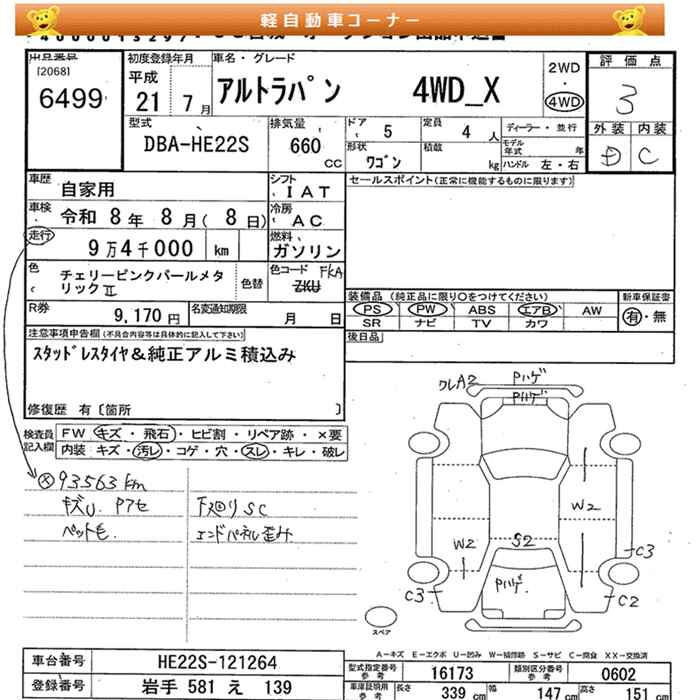 軽自動車コーナー
出品番号 初度登録年月 車名・グレード 評価点
[2068] 平成 アルトラパン 4WD_X 2WD ・ 4WD 3
6499 21年 7月
型式 排気量 ドア 5 定員 4人 ディーラー・並行 外装 内装
DBA-HE22S 660cc 形状 ワゴン 積数 kg モデル年式 年 ハンドル 左・右 D C
車歴 自家用 シフト IAT セールスポイント(正常に機能するものに限ります)
車検 令和 8年 8月( 8日) 冷房 AC
走行 9万4千000 km 燃料 ガソリン
色 チェリーピンクパールメタリックⅡ 色替 色コード FKA ZKU
装備品(純正品に限り○をつけてください) 新車保証書
PS PW ABS エアB AW 有・無
SR ナビ TV カワ
R券 9,170円 名変通知期限 月 日
後日品
注意事項申告欄(不具合内容等は具体的に記入して下さい)
スタッドレスタイヤ&純正アルミ積込み
修復歴 有〔箇所 〕
検査員記入欄 FW キズ・飛石・ヒビ割・リペア跡・×要
内装 キズ・汚レ・コゲ・穴・スレ・キレ・破レ
93563km
キズU. Pアセ 下廻りSC
ペット毛. エンドパネル歪み
クレA2 Pハゲ
Pハゲ
W2
W2 S2
C3
Pハゲ.
C3 C2
スペア
A-キズ E-エクボ U-凹み W-補修跡 S-サビ C-腐食 XX-交換済
車台番号 HE22S-121264 型式指定番号 参考 16173 類別区分番号 参考 0602
登録番号 岩手 581 え 139 車庫証明用 参考 長さ 339cm 幅 147cm 高さ 151cm